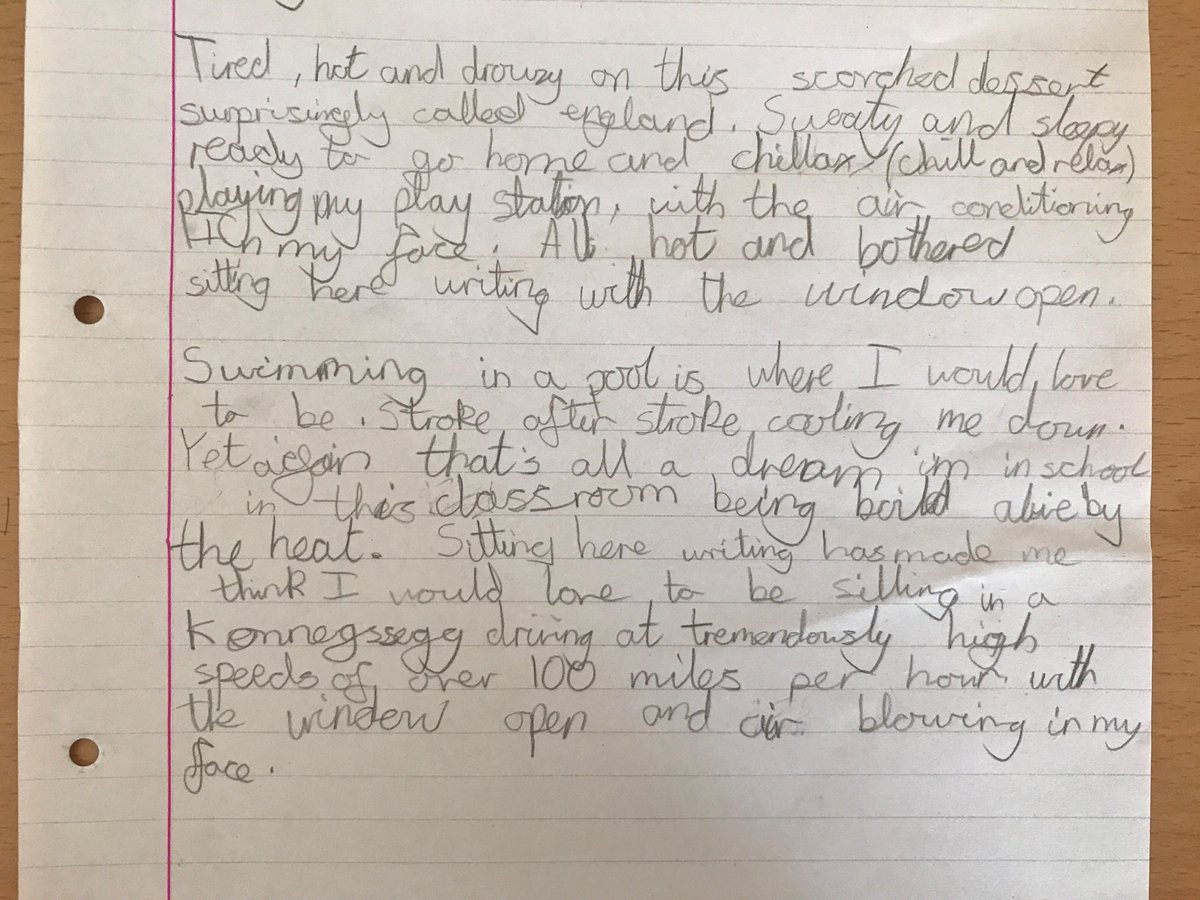 Tired, hot and drouzy on this scorched dessert
surprisingly called england. Sweaty and sleepy
ready to go home and chillax (chill and relax)
playing my play station, with the air conditioning
in my face. All hot and bothered
sitting here writing with the window open.
Swimming in a pool is where I would love
to be. Stroke after stroke cooling me down.
Yet again that's all a dream i'm in school
in this classroom being boild alive by
the heat. Sitting here writing has made me
think I would love to be sitting in a
Konnegssegg driving at tremendously high
speeds of over 100 miles per hour with
the window open and air blowing in my
face.